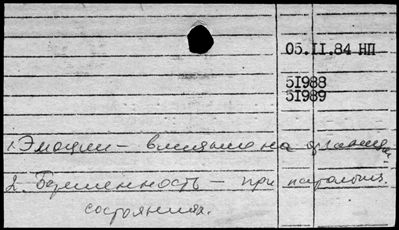 05.II.84 НП
5I988
5I989
1. Эмоции — влияние на организм
2. Беременность — при патолог.
состояниях.